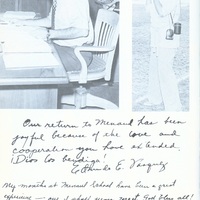 Our return to Menaul has been
joyful because of the love and
cooperation you have extended.
¡Dios los bendiga!
Edmundo E. Vasquez
My months at Menaul School have been a great
experience — one I shall never forget. God bless all!